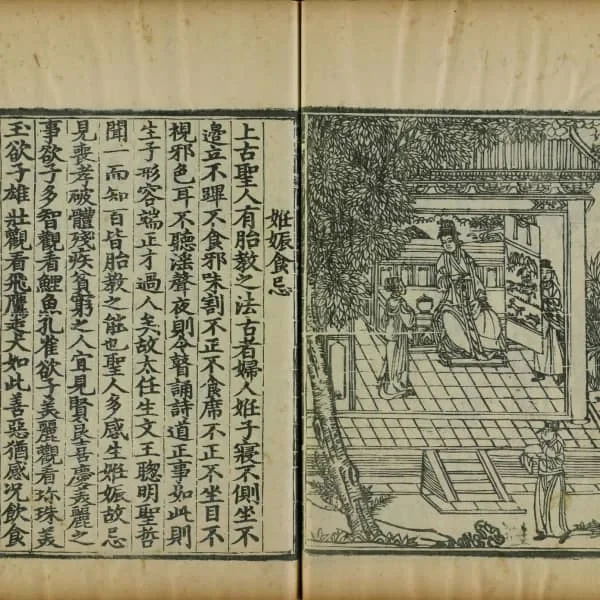 姙娠食忌
上古聖人有胎教之法古者婦人姙子寢不側坐不
邊立不蹕不食邪味割不正不食席不正不坐目不
視邪色耳不聽淫聲夜則令瞽誦詩道正事如此則
生子形容端正才過人矣故太任生文王聰明聖哲
聞一而知百皆胎教之能也聖人多感生姙娠故忌
見喪孝破體殘疾貧窮之人宜見賢良喜慶美麗之
事欲子多智觀看鯉魚孔雀欲子美麗觀看珍珠美
玉欲子雄壯觀看飛鷹走犬如此善惡猶感况飲食